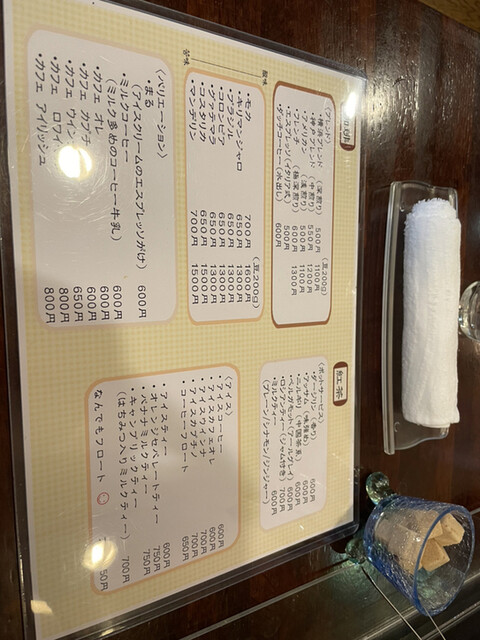 〈ブレンド〉
(豆200g)
・横浜ブレンド (深煎り) 500円 1100円
・神戸ブレンド (中煎り) 550円 1200円
・アメリカン (浅煎り) 500円 1100円
・フレンチ (極深煎り) 600円 1300円
・エスプレッソ(イタリア式) 500円
・ダッチコーヒー(水出し) 600円
酸味
苦味
(豆200g)
・モカ 700円 1600円
・キリマンジャロ 650円 1300円
・ブラジル 650円 1300円
・コロンビア 650円 1300円
・グァテマラ 650円 1300円
・コスタリカ 650円 1500円
・マンデリン 700円 1500円
〈バリエーション〉
・まる
(アイスクリームのエスプレッソがけ) 600円
・ミルクコーヒー
(ミルク多めのコーヒー牛乳) 600円
・カフェ オレ 600円
・カフェ カプチーノ 600円
・カフェ ウィンナ 650円
・カフェ ロワイヤル 800円
・カフェ アイリッシュ 800円
紅茶
〈ポットサービス〉
・ダージリン(香り) 600円
・アッサム(味強め) 600円
・ニルギリ(中国茶系) 600円
・ベルガモット(アールグレイ) 600円
・ロシアンティー(ジャム付き) 700円
・ミルクティー
(プレーン/シナモン/ジンジャー) 600円
〈アイス〉
・アイスコーヒー 600円
・アイスカフェオレ 600円
・アイスウィンナ 700円
・アイスカプチーノ 700円
・コーヒーフロート 650円
・アイスティー 600円
・オレンジセパレートティー 750円
・バナナミルクティー 750円
・キャンブリックティー
(はちみつ入りミルクティー) 700円
なんでもフロート
50円